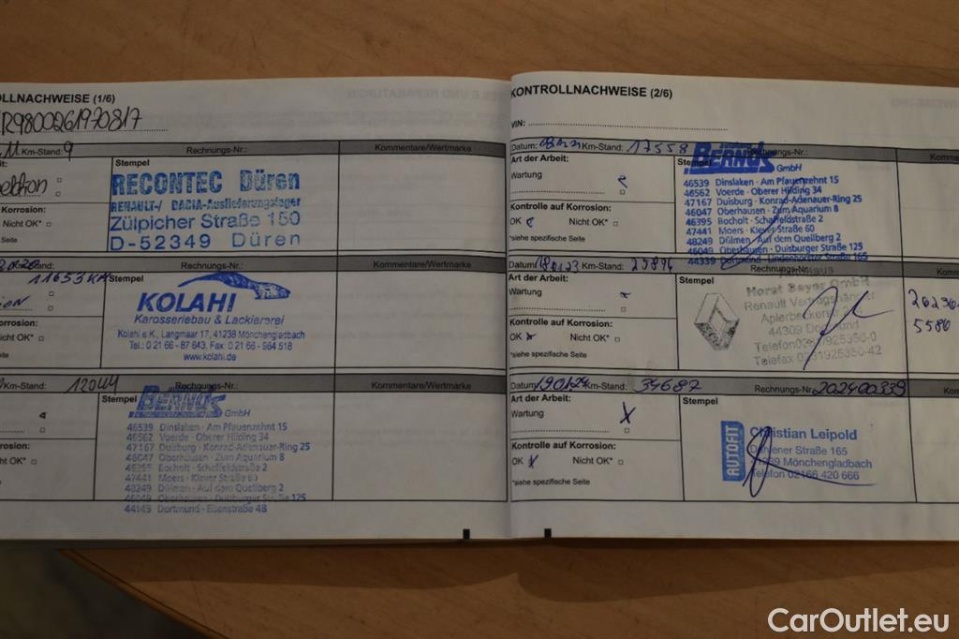 OLLNACHWEISE (1/6)
R9800261970817
Km-Stand: 9
Rechnungs-Nr.:
Kommentare/Wertmarke
Stempel
RECONTEC Düren
RENAULT-/ DACIA-Auslieferungslager
Zülpicher Straße 150
D-52349 Düren
Korrosion:
Nicht OK*
Seite
11653 KM
Rechnungs-Nr.:
Kommentare/Wertmarke
Stempel
KOLAHI
Karosseriebau & Lackiererei
Kolahi e.K., Langmaar 17, 41238 Mönchengladbach
Tel.: 0 21 66 - 87 643, Fax: 0 21 66 - 984 518
www.kolahi.de
orrosion:
Nicht OK*
Seite
Km-Stand: 12044
Rechnungs-Nr.:
Kommentare/Wertmarke
Stempel
BERNDS GmbH
46539 Dinslaken · Am Pfauenzehnt 15
46562 Voerde · Oberer Hilding 34
47167 Duisburg · Konrad-Adenauer-Ring 25
46047 Oberhausen · Zum Aquarium 8
46395 Bocholt · Schaffeldstraße 2
47441 Moers · Klever Straße 60
48249 Dülmen · Auf dem Quellberg 2
46049 Oberhausen · Duisburger Straße 125
44149 Dortmund
rosion:
OK*
Seite
KONTROLLNACHWEISE (2/6)
VIN:
Datum:
Km-Stand: 17558
Rechnungs-Nr.:
Komme
Art der Arbeit:
Wartung
Kontrolle auf Korrosion:
OK
Nicht OK*
*siehe spezifische Seite
BERNDS GmbH
46539 Dinslaken · Am Pfauenzehnt 15
46562 Voerde · Oberer Hilding 34
47167 Duisburg · Konrad-Adenauer-Ring 25
46047 Oberhausen · Zum Aquarium 8
46395 Bocholt · Schaffeldstraße 2
47441 Moers · Klever Straße 60
48249 Dülmen · Auf dem Quellberg 2
46049 Oberhausen · Duisburger Straße 125
44339 Dortmund
Datum:
Km-Stand:
Rechnungs-Nr.:
Kom
Art der Arbeit:
Wartung
Kontrolle auf Korrosion:
OK
Nicht OK*
*siehe spezifische Seite
Stempel
Horst Beyer GmbH
Renault Vertragshändler
44309 Dortmund
5586
Datum:
Km-Stand: 34687
Rechnungs-Nr.: 202400339
Kom
Art der Arbeit:
Wartung
Kontrolle auf Korrosion:
OK
Nicht OK*
*siehe spezifische Seite
Stempel
AUTOFIT
Christian Leipold
Straße 165
Mönchengladbach
Telefon 02166 420 666
CarOutlet.eu